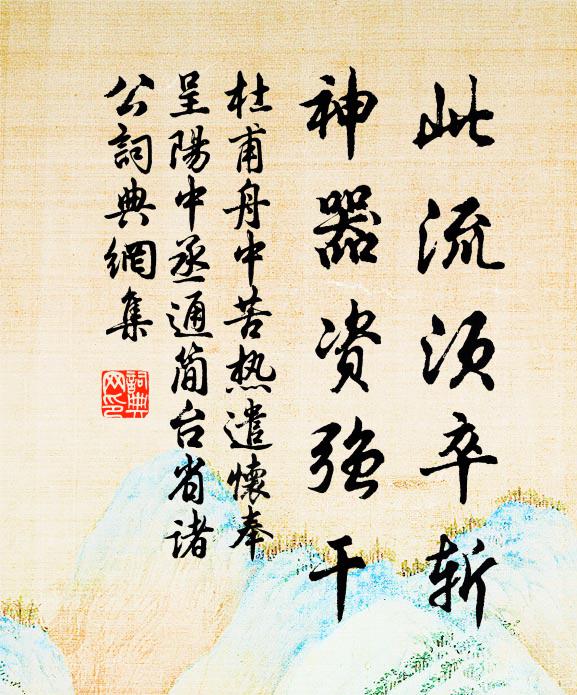 此流须卒斩
神器资强干
杜甫舟中苦热遣懷奉
呈陽中丞通简台省诸
公詞典網集
詞典
网印